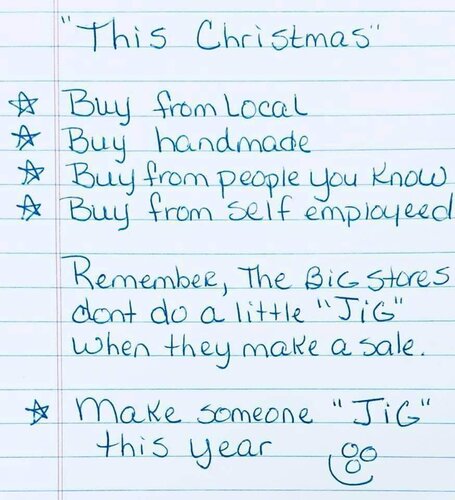 "This Christmas"
Buy from Local
Buy handmade
Buy from people you Know
Buy from self employeed
Remember, The BiG stores
dont do a little "JiG"
when they make a sale.
Make someone "JiG"
this year